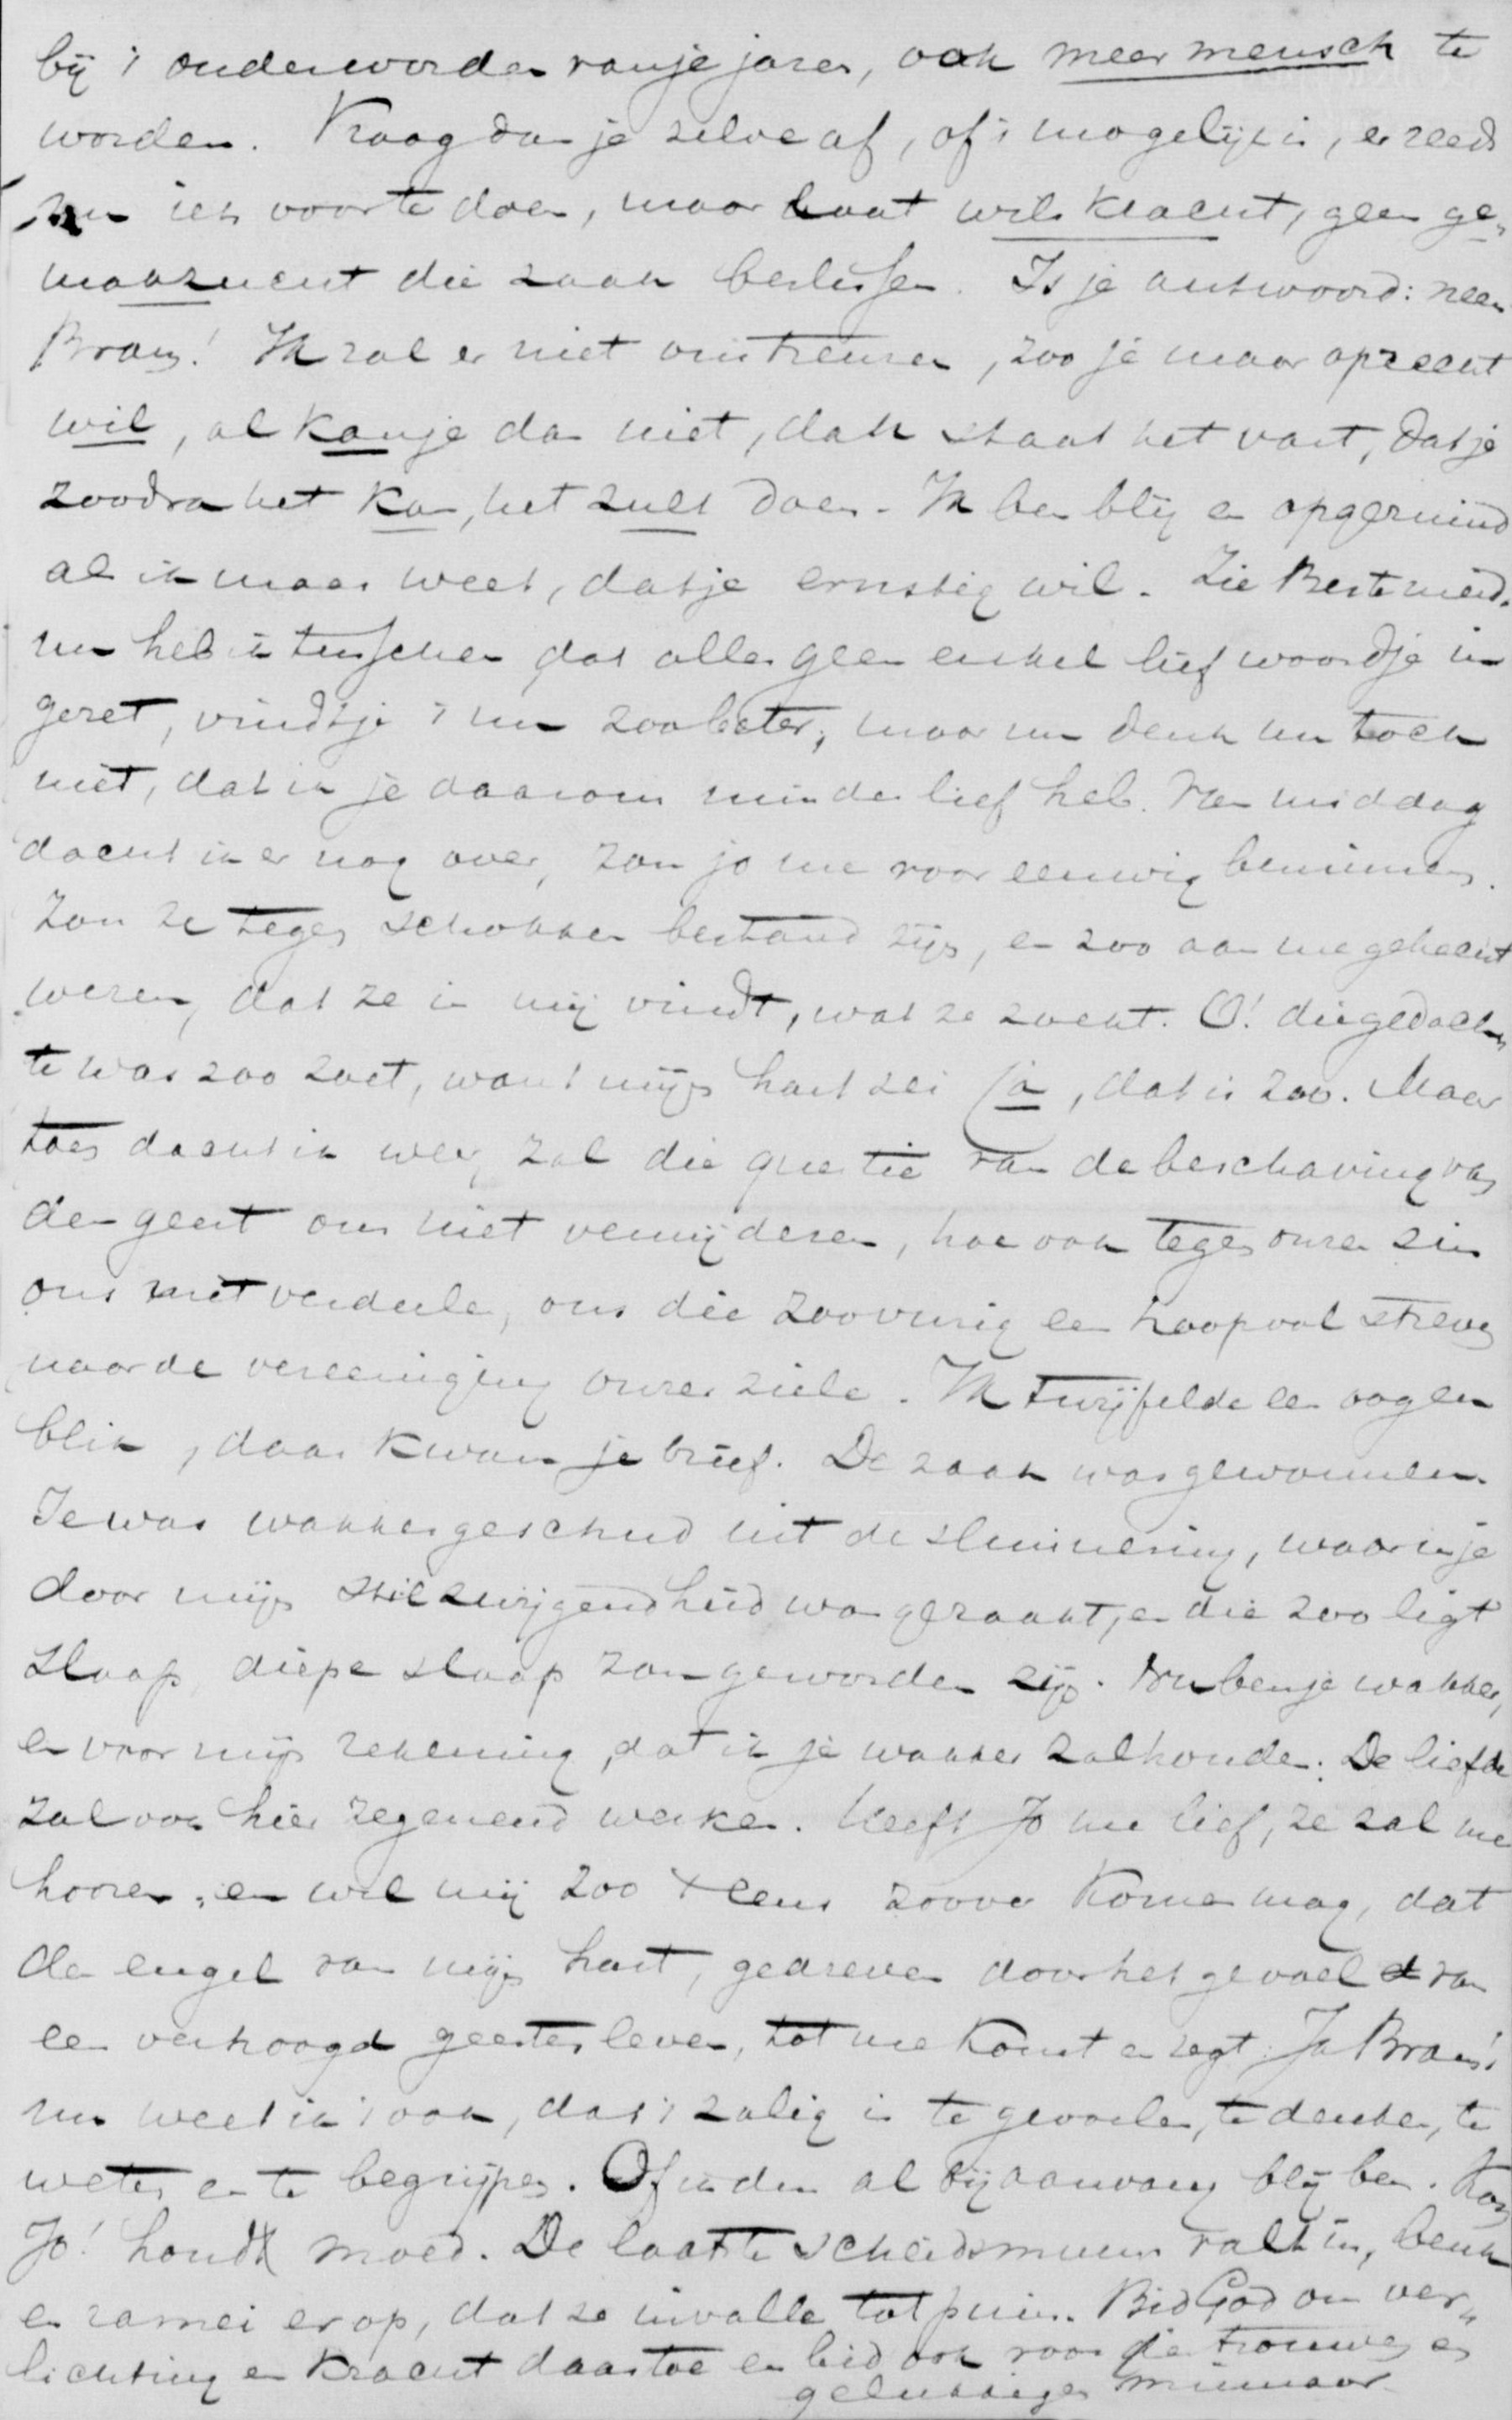 bij 't ouderworden van je jaren, ook meer mensch te
worden. Vraag dan je zelve af, of 't mogelijk is, er reeds
nu iets voor te doen, maar laat wilskracht, geen ge-
makzucht die zaak beslissen. Is je antwoord: neen
Bram! Ik zal er niet om treuren, zoo je maar oprecht
wil, al kan je dan niet, dan staat het vast, dat je
zoodra het kan, het zult doen. Ik ben blij en opgeruimd
als ik maar weet, dat je ernstig wil. Zie Beste meid.
nu heb ik tusschen dat alles geen enkel lief woordje in
gezet, vindt je 't nu zoo beter, maar nu denk nu toch
niet, dat ik je daarom minder lief heb. Van middag
dacht ik er nog over, zou jo me voor eeuwig beminnen.
Zou ze tegen schokken bestand zijn, en zoo aan me gehecht
wezen, dat ze in mij vindt, wat ze zoekt. O! die gedach-
te was zoo zoet, want mijn hart zei ja, dat is zoo. Maar
toen dacht ik weer, zal die questie van de beschaving van
den geest ons niet verwijderen, hoe ook tegen onzen zin
ons niet verdeelen, ons die zoo vurig en hoopvol streven
naar de vereeniging onzer ziele. Ik twijfelde een oogen
blik, daar kwam je brief. De zaak was gewonnen.
Je was wakker geschud uit de sluimering, waarin je
door mijn stilzwijgendheid was geraakt, en die zoo ligt
slaap, diepe slaap zou geworden zijn. Nu ben je wakker,
en voor mijn rekening, dat ik je wakker zal houden. De liefde
zal ook hier zegenend werken. Heeft Jo me lief, ze zal me
hooren, en wil mij zoo eens zoover komen mag, dat
de engel van mijn hart, gedreven door het gevoel van
een verhoogd geestesleven, tot me komt en zegt: Ja Bram!
nu weet ik 't ook, dat 't zalig is te gevoelen, te denken, te
weten en te begrijpen. Of ik dan al bij aanvang blij ben. Kom
Jo! houdt moed. De laatste scheidsmuur valt in, beuk
en rammei er op, dat ze invalle tot puin. Bid God om ver-
lichting en kracht daartoe en bid ook voor je trouwen en
gelukkigen minnaar